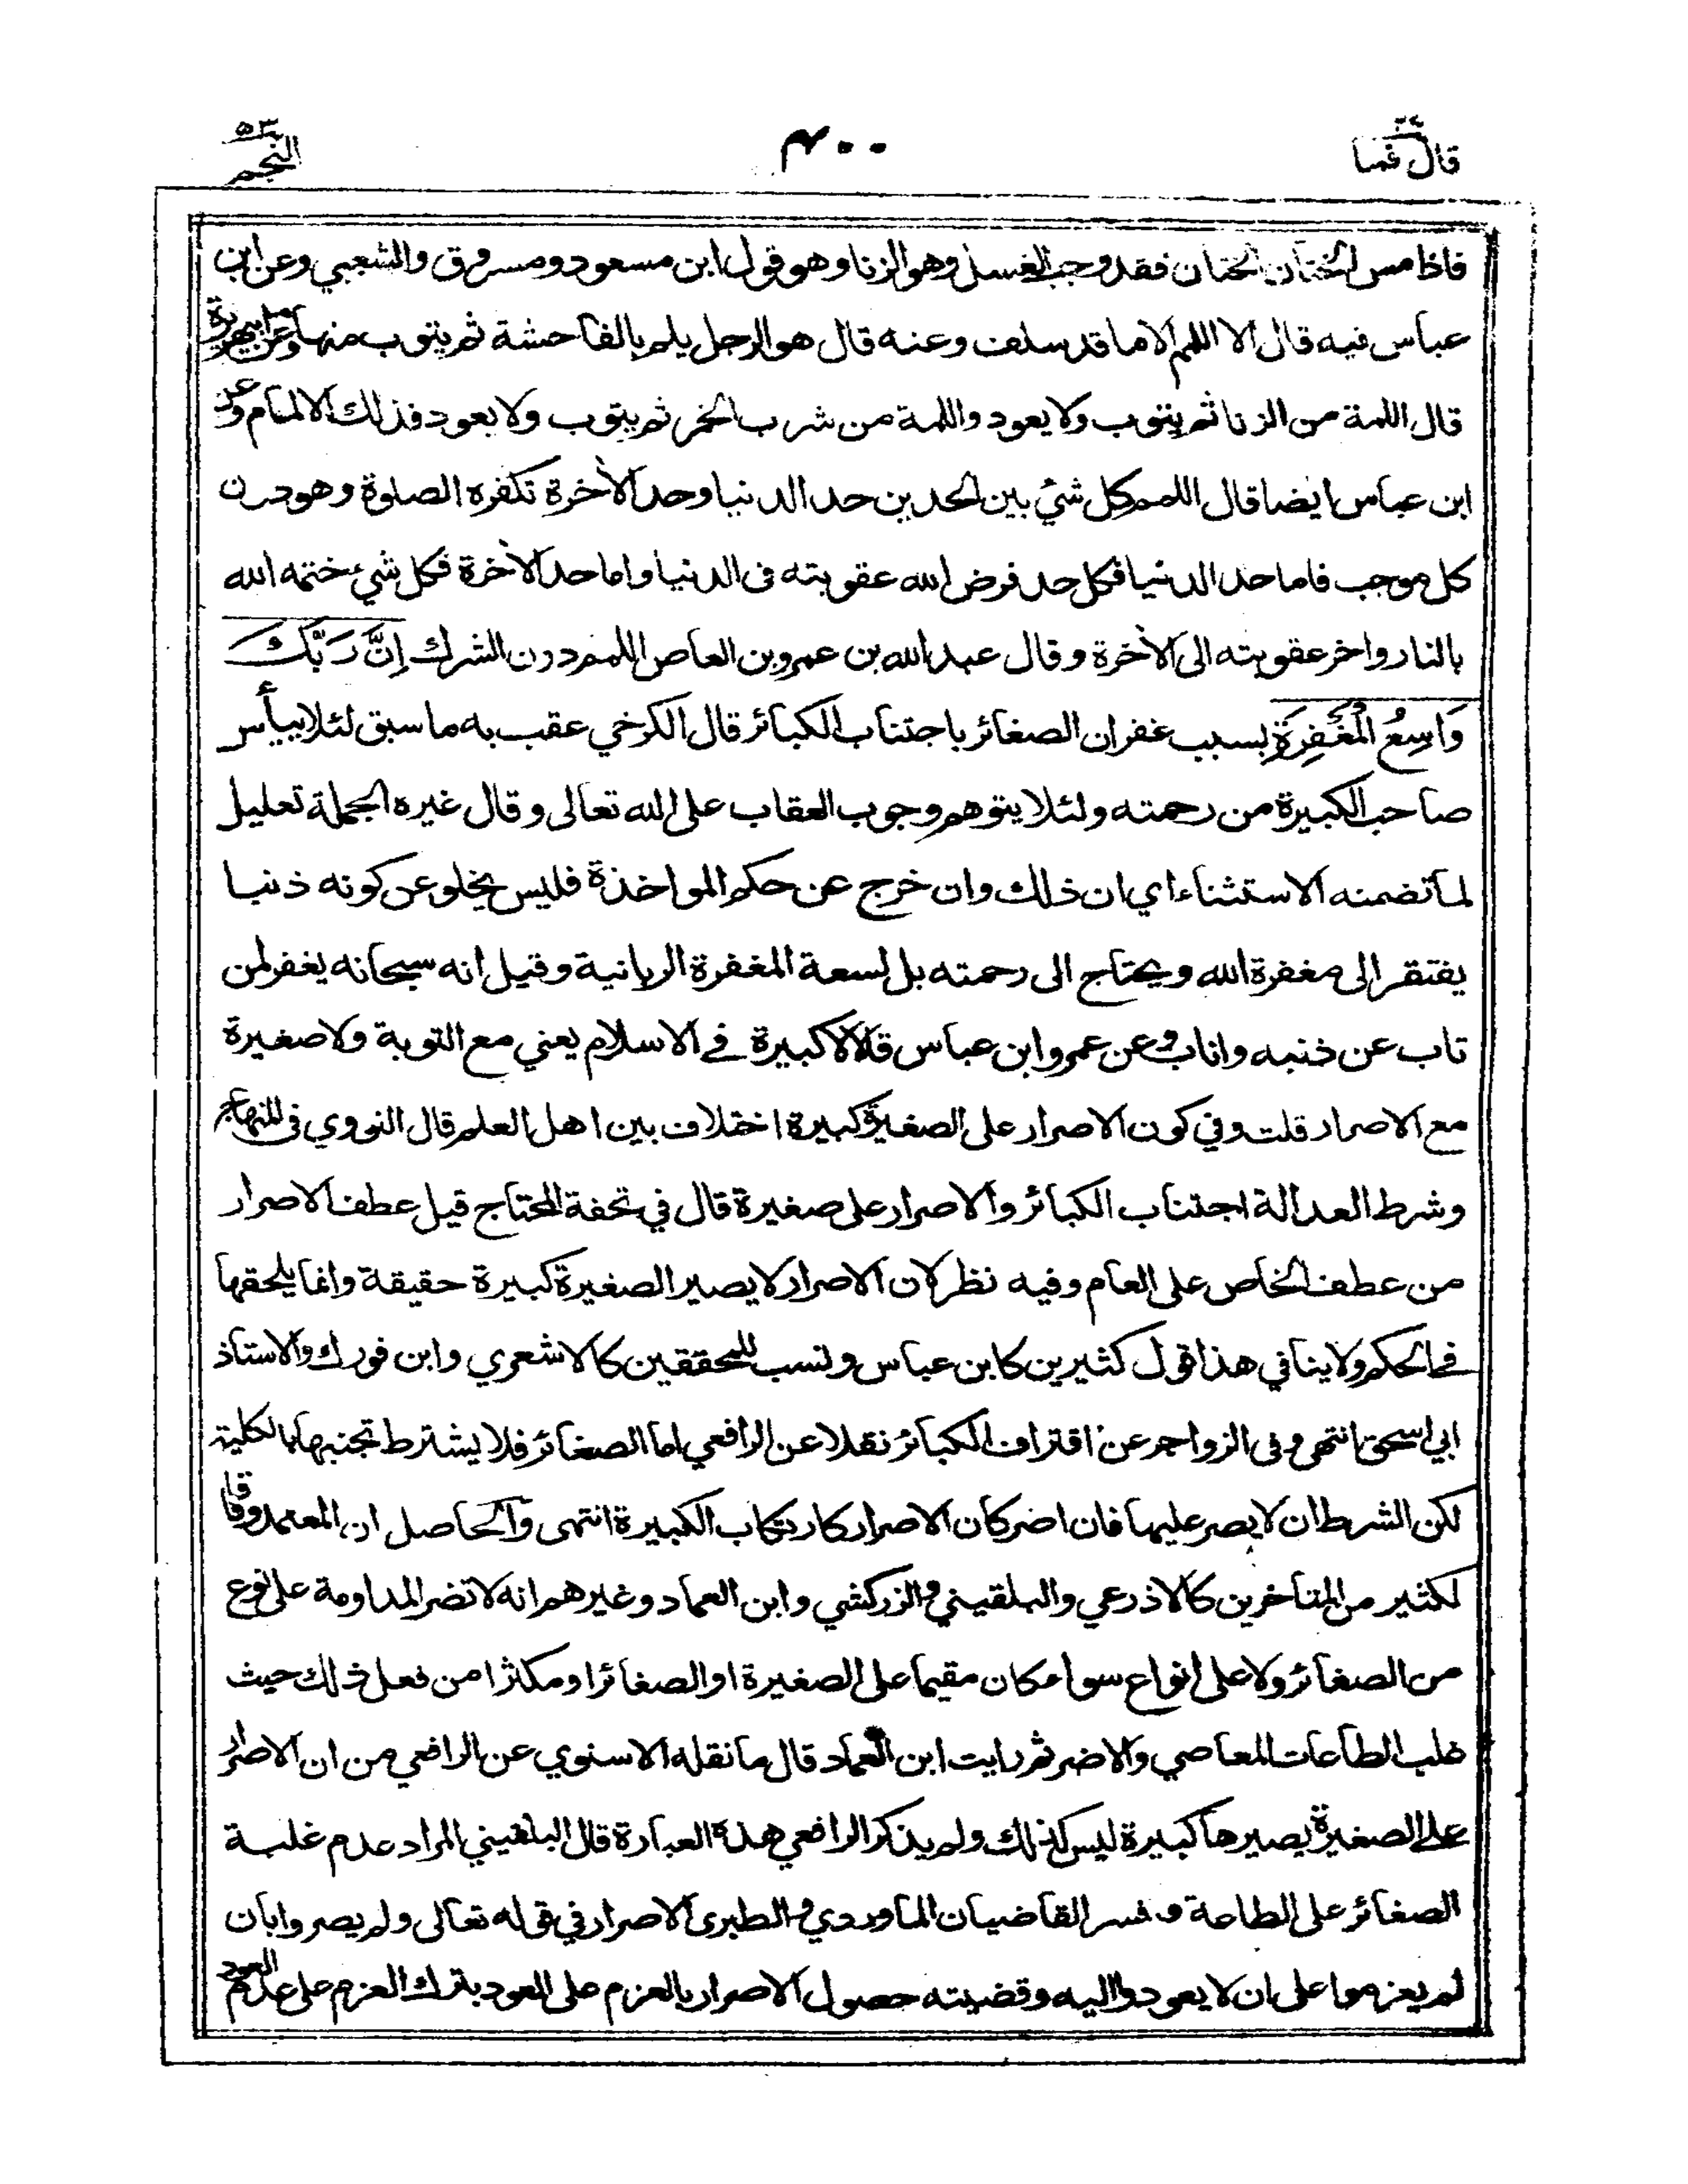 قال فما ٢٧
٤٠٠
النجم ٥٣
فاذا مس الختان الختان فقد وجب الغسل وهو الزنا وهو قول ابن مسعود ومسروق والشعبي وعن ابن
عباس فيه قال الا اللمم الا ما قد سلف وعنه قال هو الرجل يلم بالفاحشة ثم يتوب منها وعن ابي هريرة
قال اللمة من الزنا ثم يتوب ولا يعود واللمة من شرب الخمر ثم يتوب ولا يعود فذلك الالمام وعن
ابن عباس ايضا قال اللمم كل شئ بين الحدين حد الدنيا وحد الآخرة تكفره الصلوة وهو دون
كل موجب فاما حد الدنيا فكل حد فرض الله عقوبته فى الدنيا واما حد الآخرة فكل شيء ختمه الله
بالنار واخر عقوبته الى الآخرة وقال عبد الله بن عمرو بن العاص اللمم دون الشرك إِنَّ رَبَّكَ
وَاسِعُ الْمَغْفِرَةِ بسبب غفران الصغائر باجتناب الكبائر قال الكرخي عقب به ما سبق لئلا ييأس
صاحب الكبيرة من رحمته ولئلا يتوهم وجوب العقاب على الله تعالى وقال غيره الجملة تعليل
لما تضمنه الاستثناء اي ان ذلك وان خرج عن حكم المواخذة فليس يخلو عن كونه ذنبا
يفتقر الى مغفرة الله ويحتاج الى رحمته بل لسعة المغفرة الربانية وقيل انه سبحانه يغفر لمن
تاب عن ذنبه واناب وعن عمر وابن عباس قالا لا كبيرة في الاسلام يعني مع التوبة ولا صغيرة
مع الاصرار قلت وفي كون الاصرار على الصغيرة كبيرة اختلاف بين اهل العلم قال النووي فى المنهاج
وشرط العدالة اجتناب الكبائر والاصرار على صغيرة قال في تحفة المحتاج قيل عطف الاصرار
من عطف الخاص على العام وفيه نظر لان الاصرار لا يصير الصغيرة كبيرة حقيقة وانما يلحقها
في الحكم ولا ينافي هذا قول كثيرين كابن عباس ونسب للمحققين كالاشعري وابن فورك والاستاذ
ابي اسحق انتهى وفى الزواجر عن اقتراف الكبائر نقلا عن الرافعي اما الصغائر فلا يشترط تجنبها بالكلية
لكن الشرط ان لا يصر عليها فان اصر كان الاصرار كارتكاب الكبيرة انتهى والحاصل ان المعتمد وفاقا
لكثير من المتاخرين كالاذرعي والبلقيني والزركشي وابن العماد وغيرهم انه لا تضر المداومة على نوع
من الصغائر ولا على انواع سواء كان مقيما على الصغيرة او الصغائر او مكثرا من فعل ذلك حيث
غلب الطاعات المعاصي والا ضر ثم رايت ابن العماد قال ما نقله الاسنوي عن الرافعي من ان الاصرار
على الصغيرة يصيرها كبيرة ليس كذلك ولم يذكر الرافعي هذه العبارة قال البلقيني المراد عدم غلبة
الصغائر على الطاعة وفسر القاضيان الماوردي والطبرى الاصرار في قوله تعالى ولم يصروا بان
لم يعزموا على ان لا يعودوا اليه وقضيته حصول الاصرار بالعزم على العود بترك العزم على عدم العود